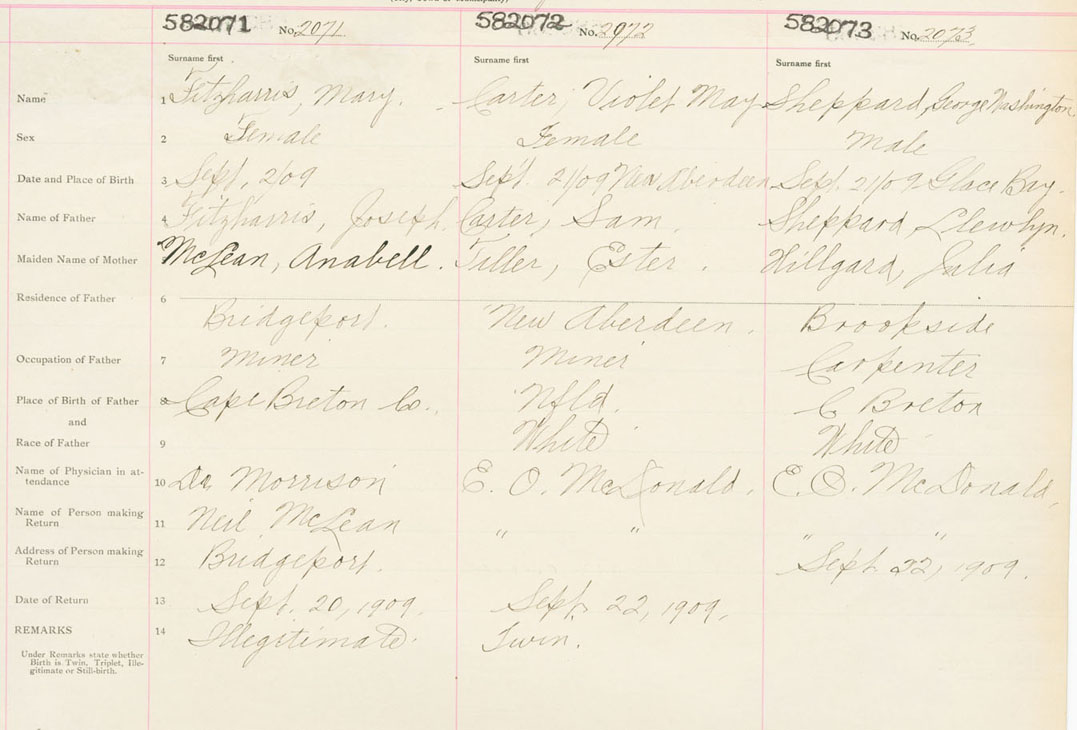 582071 No. 2071 582072 No. 2072 582073 No. 2073
Surname first Surname first Surname first
Name 1 Fitzharris, Mary. Carter, Violet May Sheppard, George Washington
Sex 2 Female Female Male
Date and Place of Birth 3 Sept, 2/09 Sept. 21/09 New Aberdeen Sept. 21/09 Glace Bay.
Name of Father 4 Fitzharris, Joseph. Carter, Sam. Sheppard, Llewlyn.
Maiden Name of Mother 5 McLean, Anabell. Tiller, Ester. Hillgard, Julia
Residence of Father 6
Bridgeport. New Aberdeen. Brookside
Occupation of Father 7 Miner Miner Carpenter
Place of Birth of Father 8 Cape Breton Co. Nfld. C Breton
and
Race of Father 9 White White
Name of Physician in at-
tendance 10 Dr. Morrison E. O. McDonald. E. O. McDonald,
Name of Person making
Return 11 Neil McLean " " " "
Address of Person making
Return 12 Bridgeport. Sept. 22, 1909.
Date of Return 13 Sept. 20, 1909. Sept. 22, 1909.
REMARKS 14 Illegitimate. Twin.
Under Remarks state whether
Birth is Twin, Triplet, Ille-
gitimate or Still-birth.